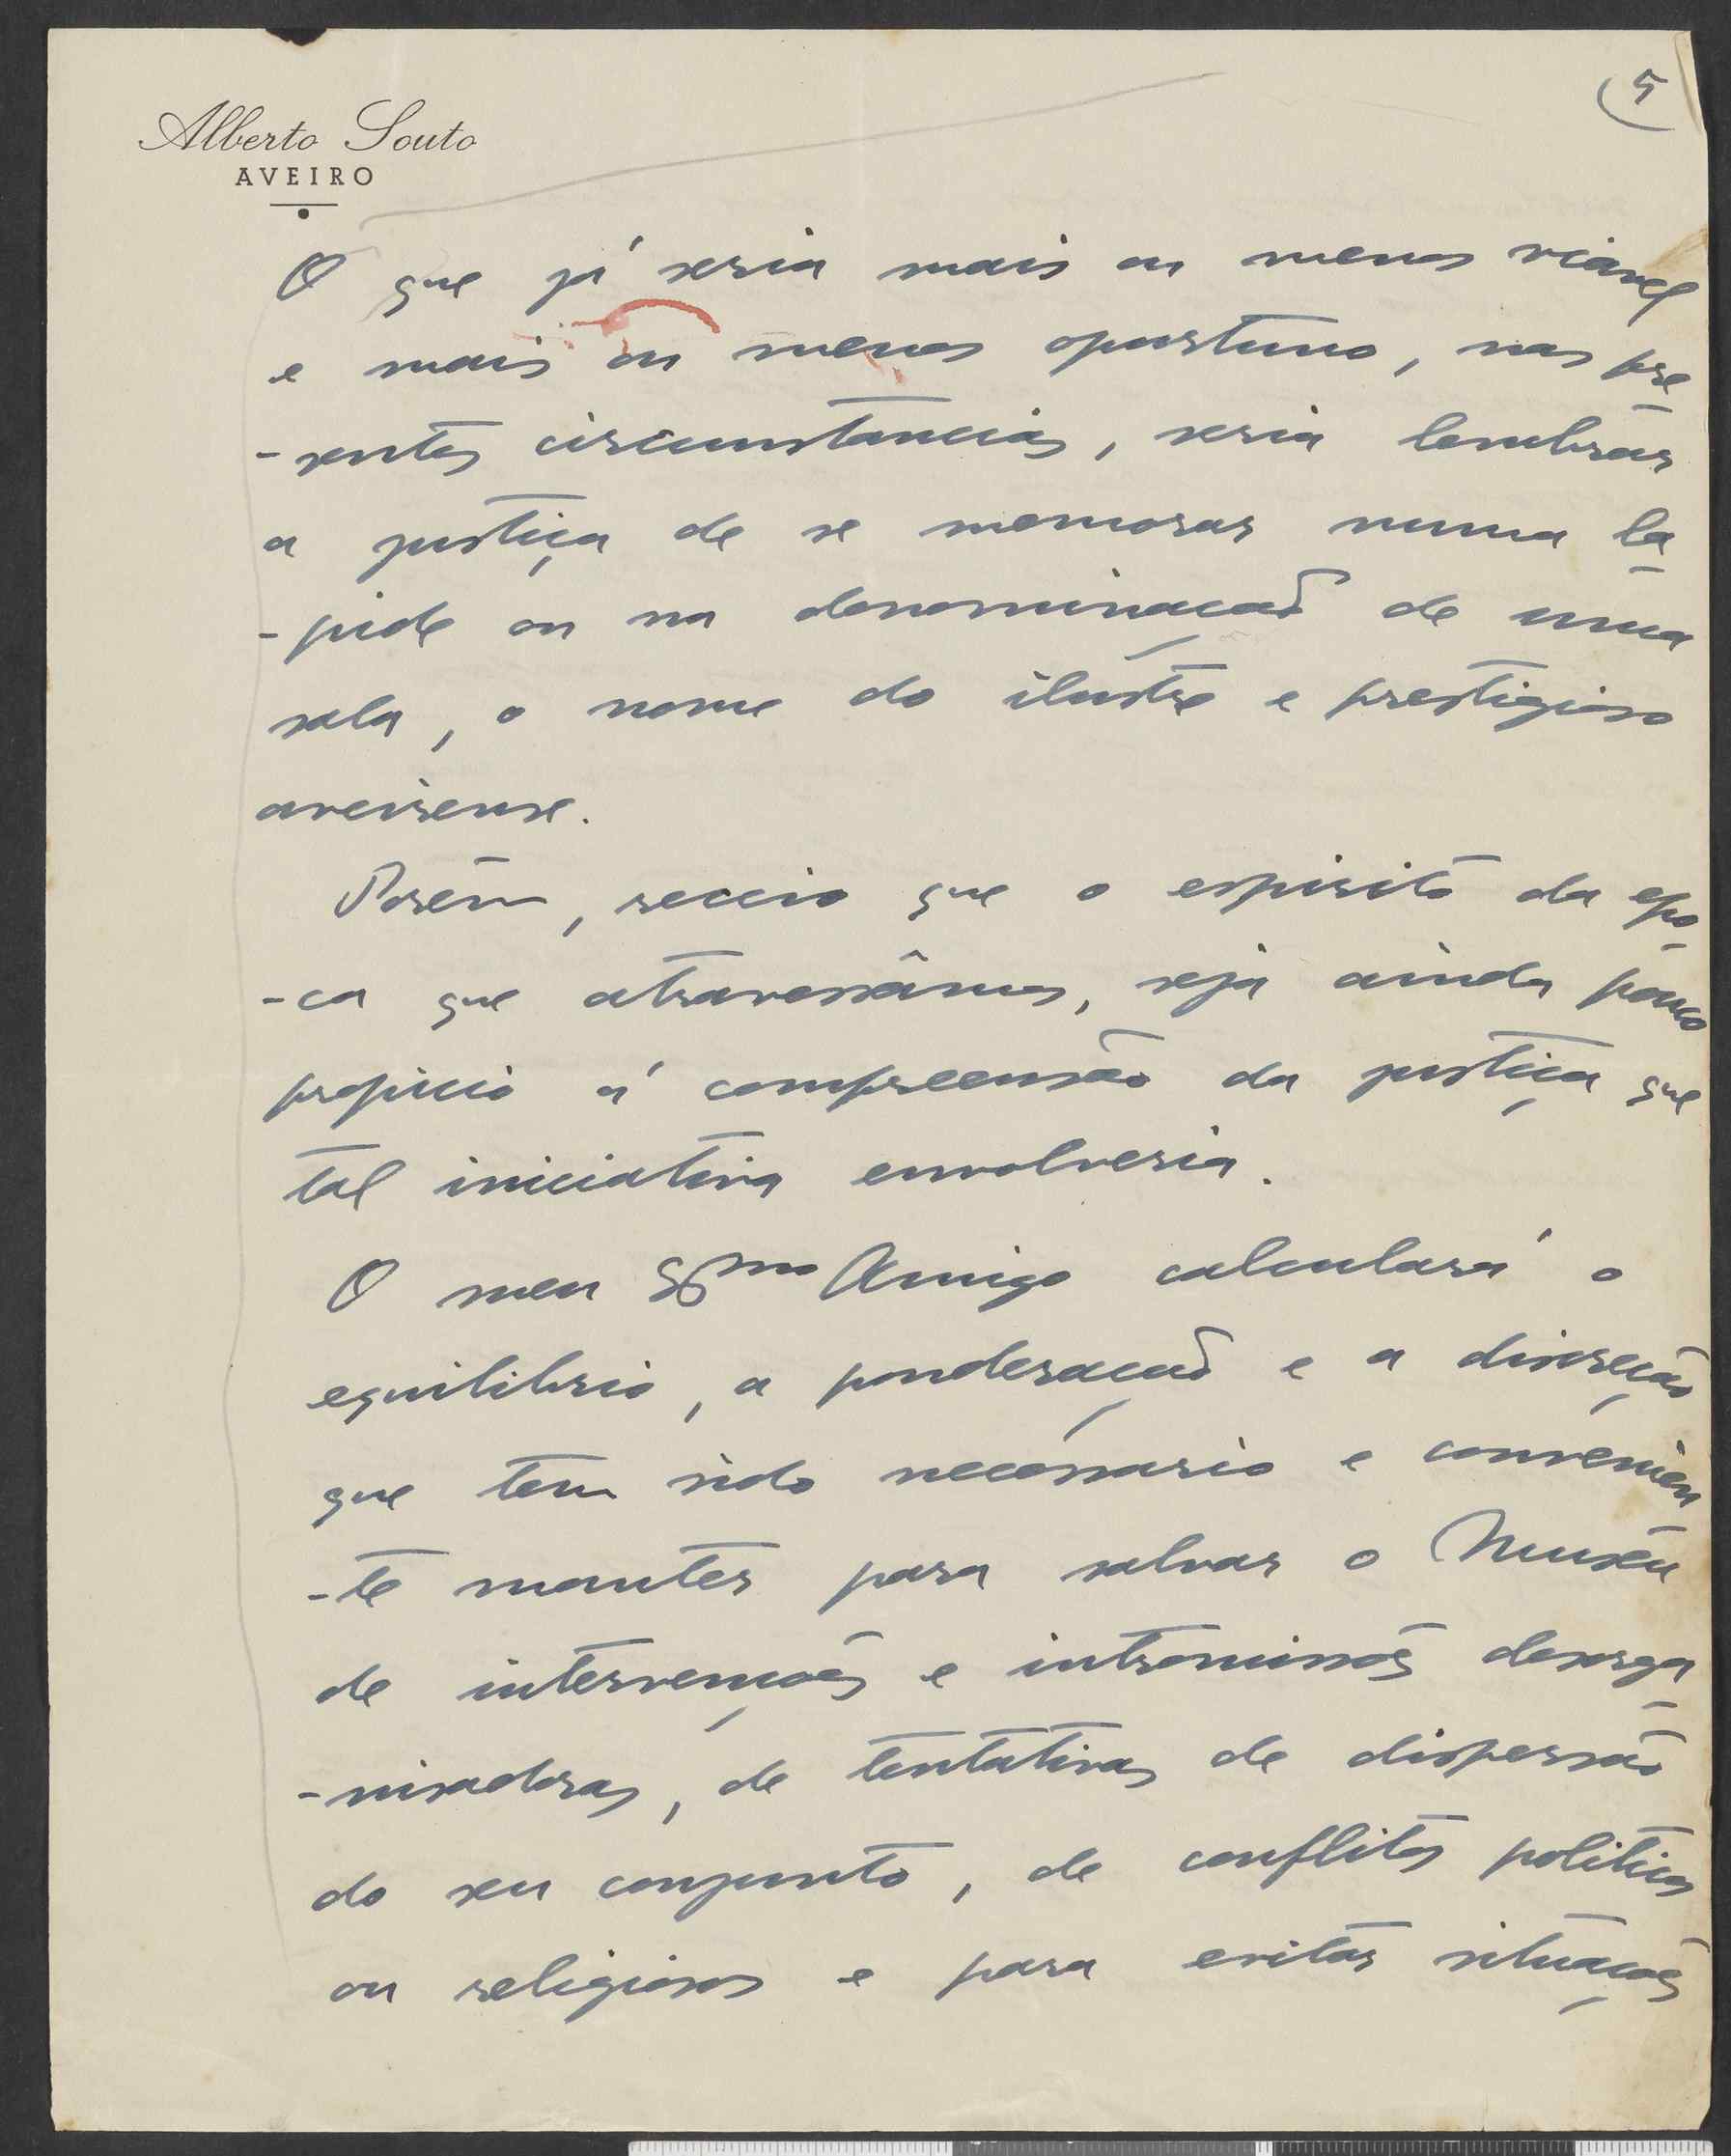 5
Alberto Souto
AVEIRO
O que já seria mais ou menos viavel
e mais ou menos oportuno, nas pre-
-sentes circunstancias, seria lembrar
a justiça de se memorar numa la-
-pide ou na denominação de uma
sala, o nome do ilustre e prestigioso
aveirense.
Porém, receio que o espirito da epo-
-ca que atravessâmos, seja ainda pouco
propicio á compreensão da justiça que
tal iniciativa envolveria.
O meu Exmo Amigo calculará o
equilibrio, a ponderação e a discreção
que tem sido necessario e convenien-
-te manter para salvar o Muséu
de intervenções e intromissões desorga-
-nisadoras, de tentativas de dispersão
do seu conjunto, de conflitos politicos
ou religiosos e para evitar situações